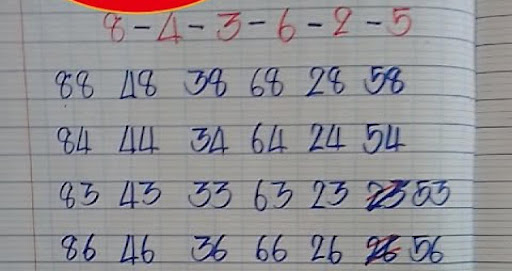 8-4-3-6-2-5
88 48 38 68 28 58
84 44 34 64 24 54
83 43 33 63 23 53
86 46 36 66 26 56